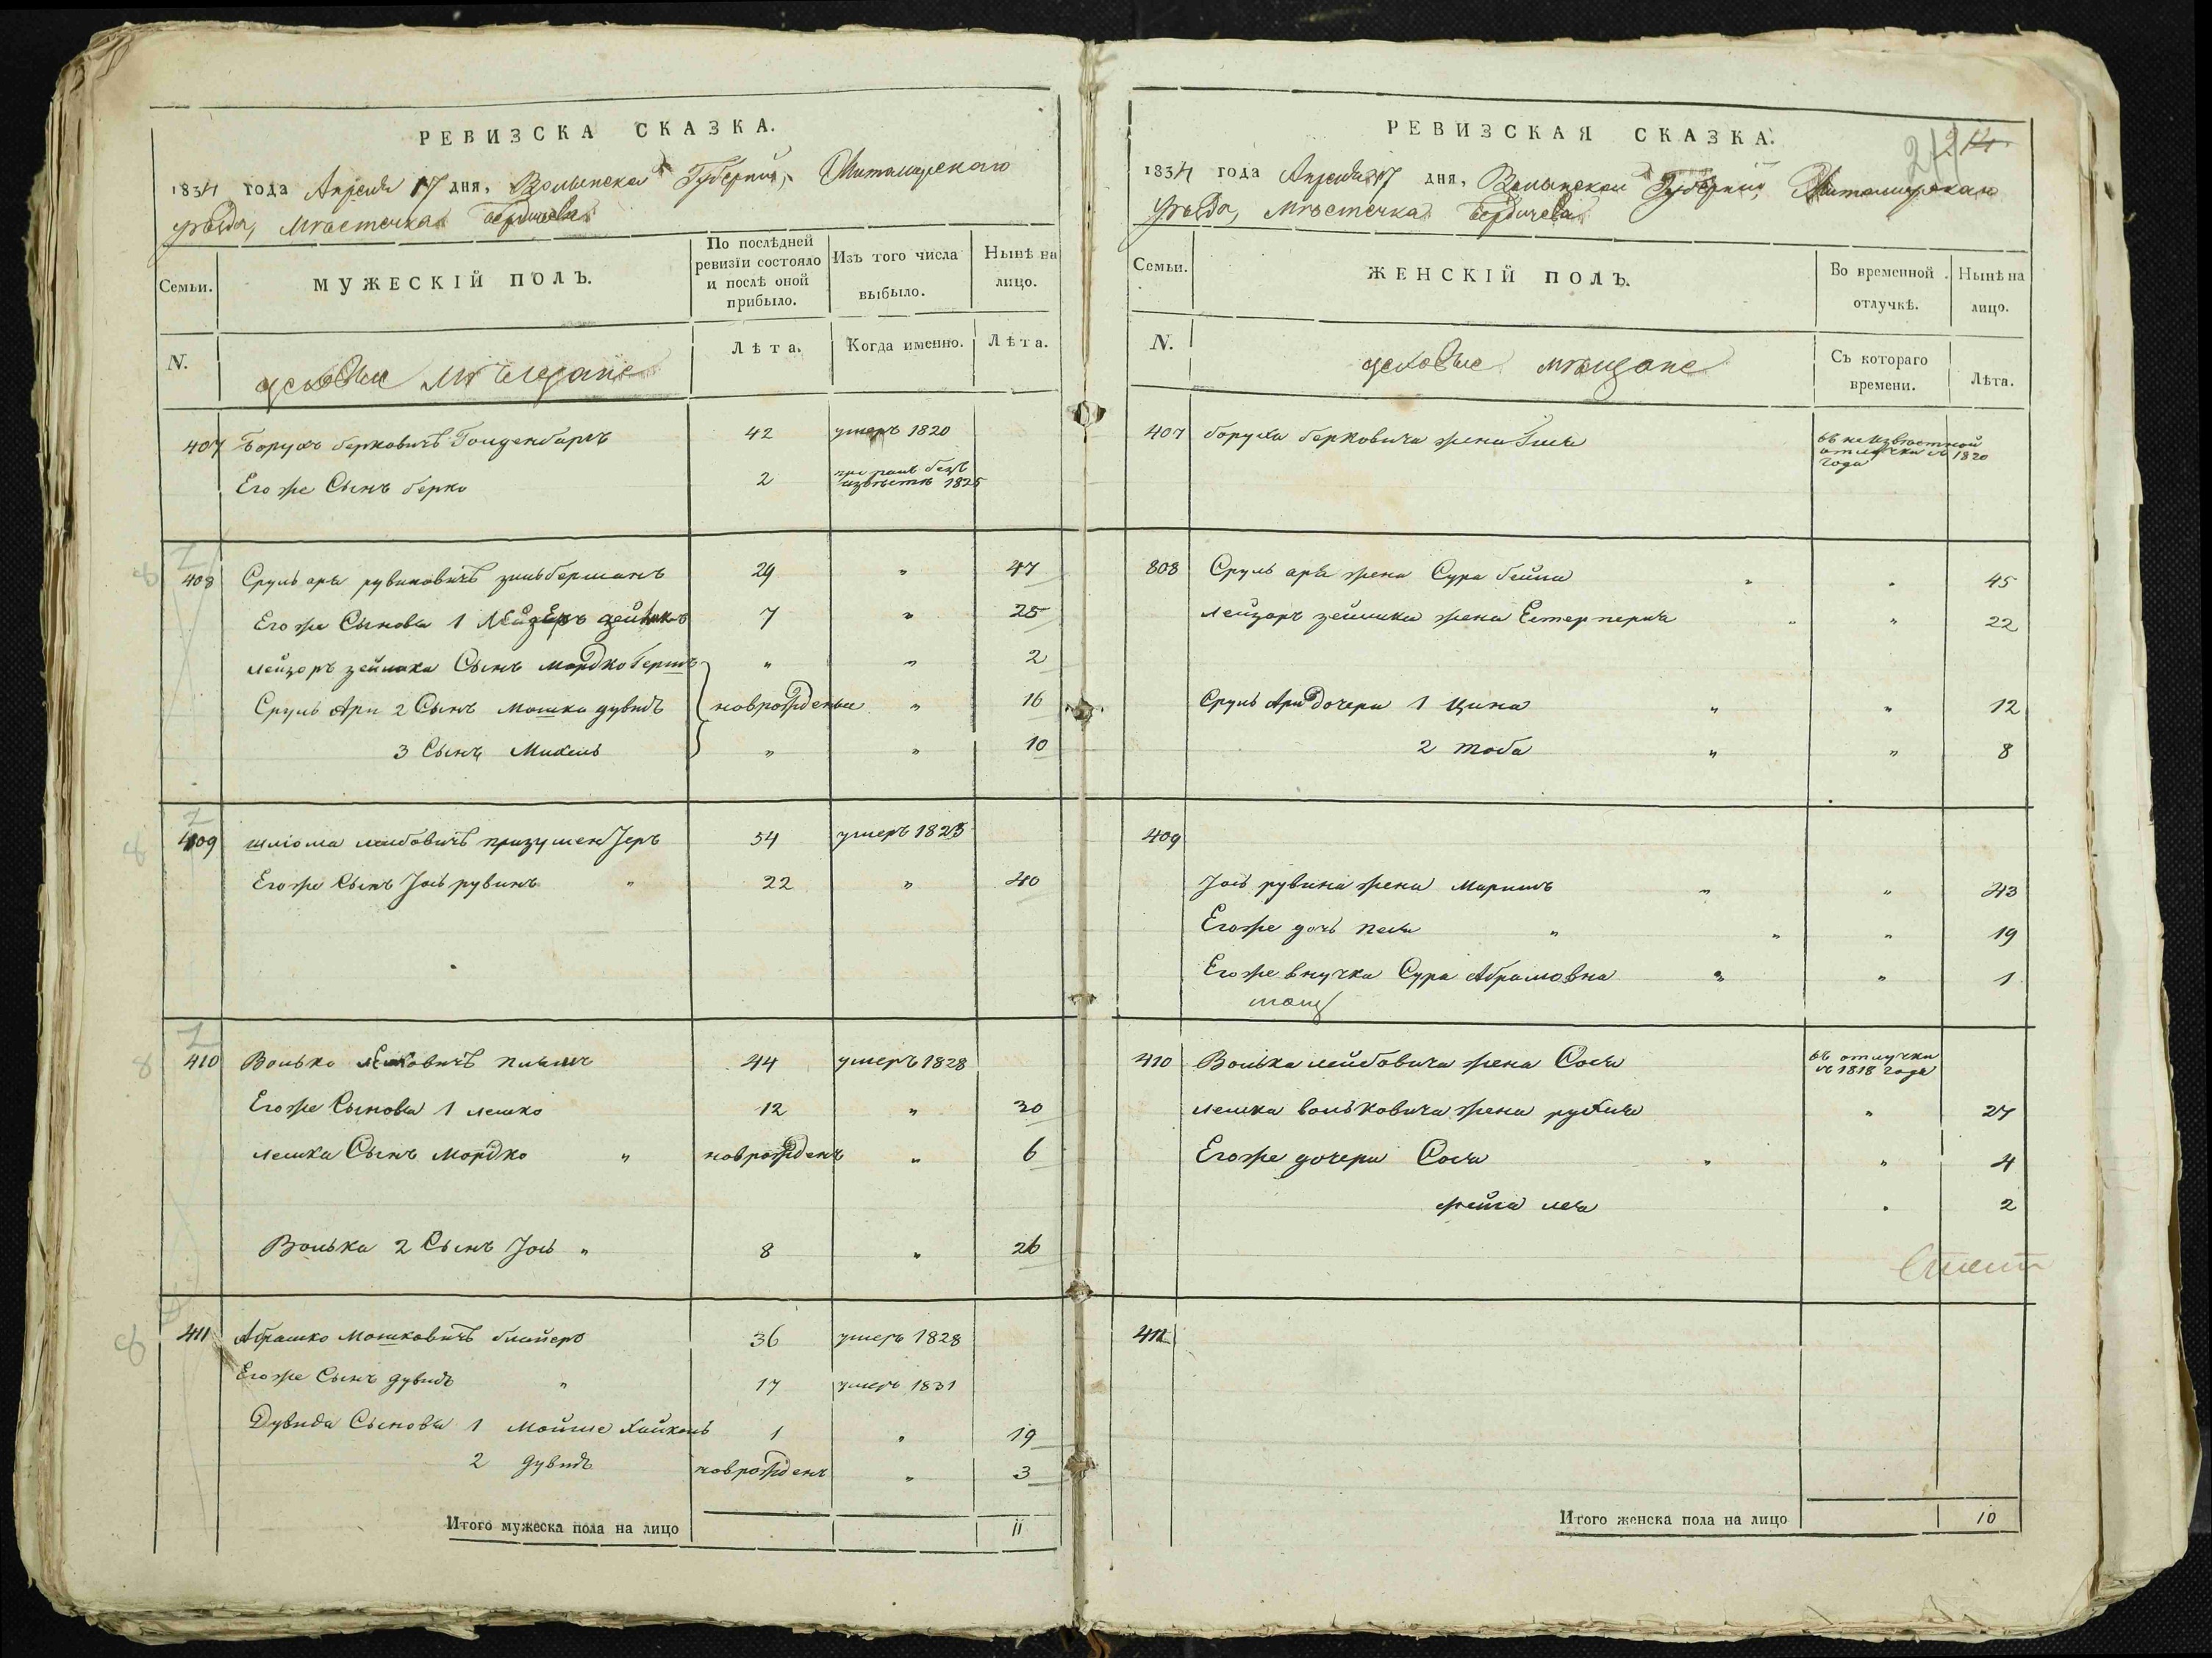 РЕВИЗСКА СКАЗКА.
1834 года Апреля 17 дня, Волынской Губернии, Житомирскаго
уѣзда, Мѣстечка Бердичева
Семьи.
МУЖЕСКІЙ ПОЛЪ.
По послѣдней
ревизіи состояло
и послѣ оной
прибыло.
Изъ того числа
выбыло.
Нынѣ на
лицо.
N.
цеховые мѣщане
Лѣта.
Когда именно.
Лѣта.
407 Борухъ берковичъ Гольденбергъ 42 умеръ 1820
Его же Сынъ берко 2 пропалъ безъ
извѣстн 1825
408 Сруль арья рувиновичъ зильберманъ 29 " 47
Его же Сыновья 1 Лейзеръ зейликъ 7 " 25
лейзоръ зейлика Сынъ мордко Герш " " 2
Сруль Ари 2 Сынъ мошко дувидъ новрожденые " 16
3 Сынъ Михель " " 10
409 шліома лейбовичъ 54 умеръ 1825
Его же Сынъ Јось рувинъ " 22 " 40
410 Волько 44 умеръ 1828
Его же Сыновья 1 лешко 12 " 30
лешка Сынъ мордко " новрожденъ " 6
Волька 2 Сынъ Јось " 8 " 26
411 Абрашко мошковичъ 36 умеръ 1828
Его же Сынъ дувидъ " 17 умеръ 1831
Дувида Сыновья 1 мойше хайкель 1 " 19
2 дувидъ новрожденъ " 3
Итого мужеска пола на лицо 11
РЕВИЗСКАЯ СКАЗКА.
214
1834 года Апреля 17 дня, Волынской Губернии, Житомирскаго
уѣзда, мѣстечка Бердичева
Семьи.
ЖЕНСКІЙ ПОЛЪ.
Во временной
отлучкѣ.
Нынѣ на
лицо.
N.
цеховые мѣщане
Съ котораго
времени.
Лѣта.
407 боруха берковича жена въ неизвѣстной
отлучки съ 1820
года
808 Сруль арья жена Сура бейла " " 45
лейзоръ зейлика жена Естер перля " " 22
Сруль Ари дочери 1 Цина " " 12
2 тоба " " 8
409
Јось рувина жена маримъ " " 43
Его же дочь песя " " " 19
Его же внучка Сура Абрамовна " " 1
410 Волька лейбовича жена Сося въ отлучки
съ 1818 года
лешка вольковича жена рухля " 27
Его же дочери Сося " " 4
фейга лея " 2
411
Итого женска пола на лицо 10